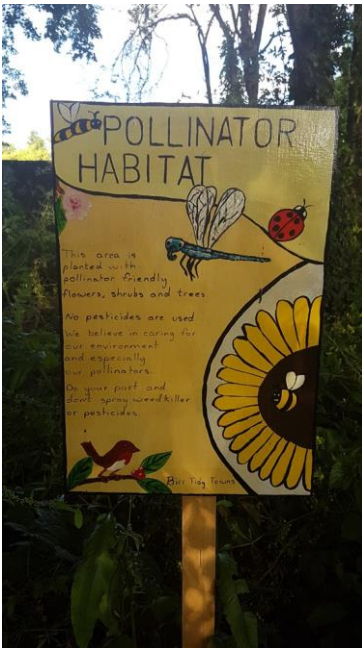 POLLINATOR
HABITAT
This area is
planted with
pollinator friendly
flowers, shrubs and trees
No pesticides are used
We believe in caring for
our environment
and especially
our pollinators.
Do your part and
dont spray weedkiller
or pesticides.
Birr Tidy Towns